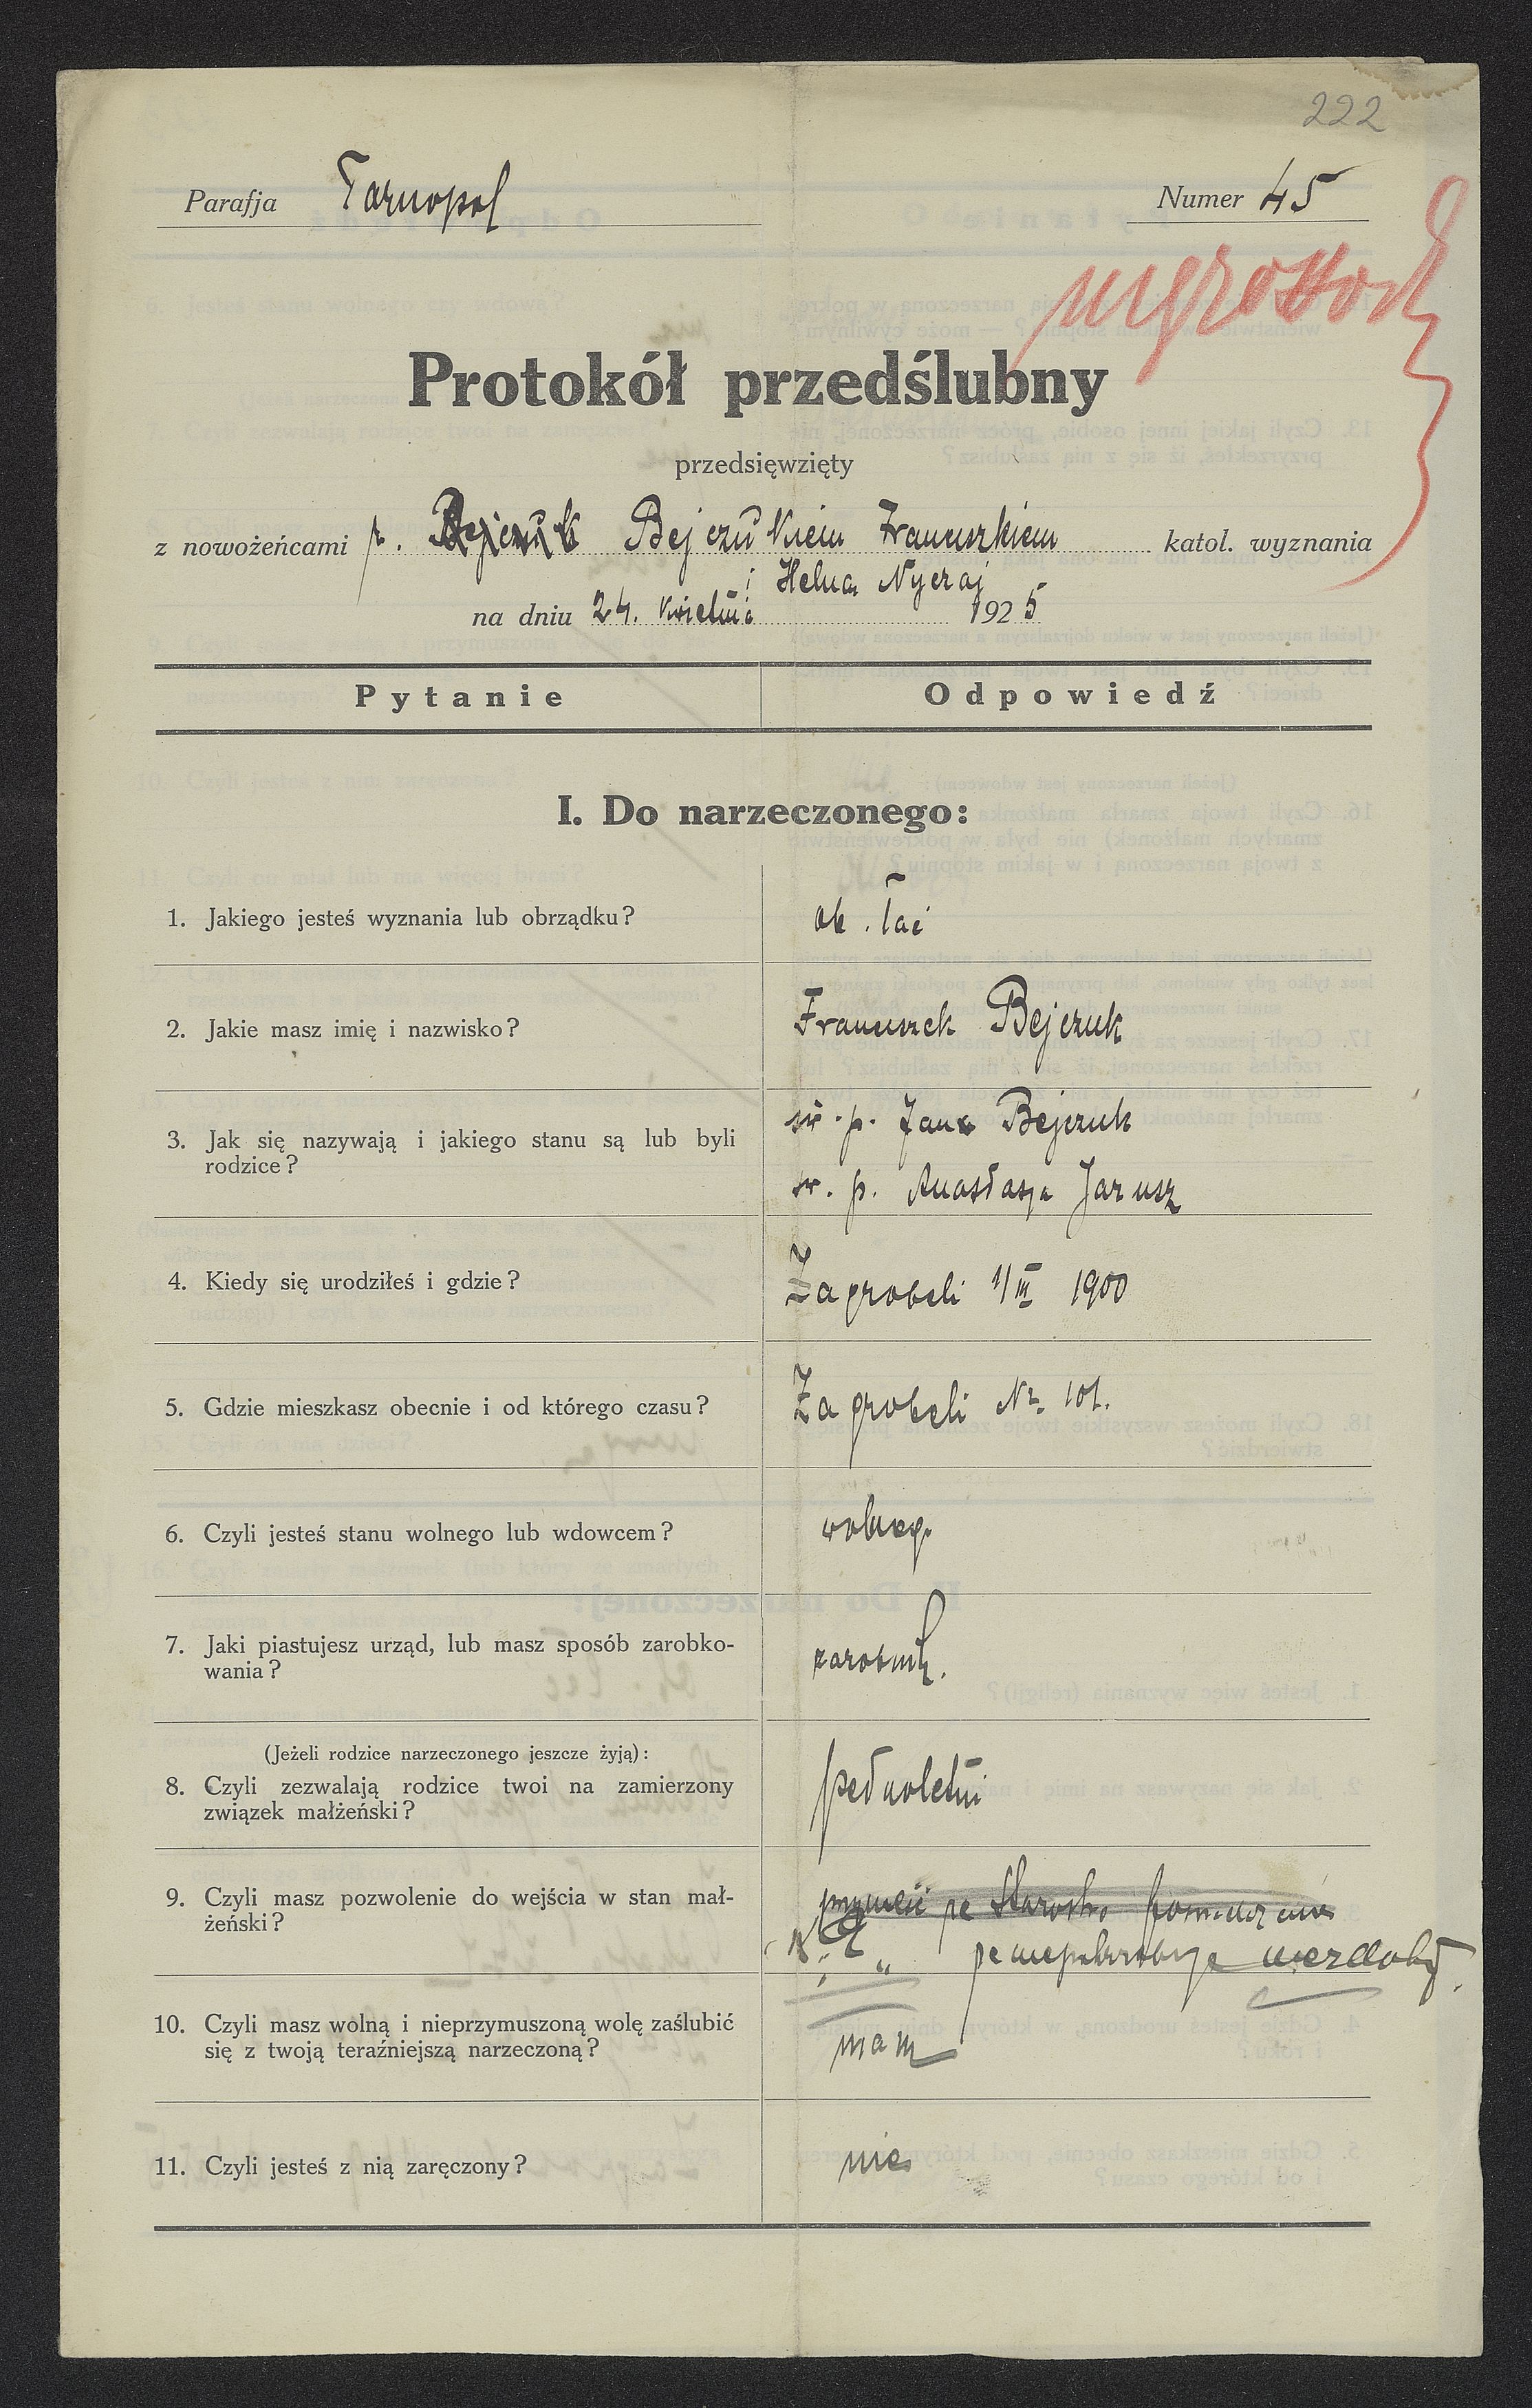 222
Parafja Tarnopol Numer 45
Protokół przedślubny
przedsięwzięty
z nowożeńcami p. Bejczukiem Franciszkiem katol. wyznania
i Helena Nyczaj
na dniu 24. kwietnia 1925
Pytanie Odpowiedź
I. Do narzeczonego:
1. Jakiego jesteś wyznania lub obrządku? ob. łać
2. Jakie masz imię i nazwisko? Franciszek Bejczuk
3. Jak się nazywają i jakiego stanu są lub byli
rodzice?
św. p. Jana Bejczuk
św. p. Anastazja Jarusz
4. Kiedy się urodziłeś i gdzie? Zagrobeli 1/III 1900
5. Gdzie mieszkasz obecnie i od którego czasu? Zagrobeli Nr. 101.
6. Czyli jesteś stanu wolnego lub wdowcem? wolnego
7. Jaki piastujesz urząd, lub masz sposób zarobko-
wania? zarobnik.
(Jeżeli rodzice narzeczonego jeszcze żyją):
8. Czyli zezwalają rodzice twoi na zamierzony
związek małżeński? pełnoletni
9. Czyli masz pozwolenie do wejścia w stan mał-
żeński?
10. Czyli masz wolną i nieprzymuszoną wolę zaślubić
się z twoją teraźniejszą narzeczoną? mam
11. Czyli jesteś z nią zaręczony? nie